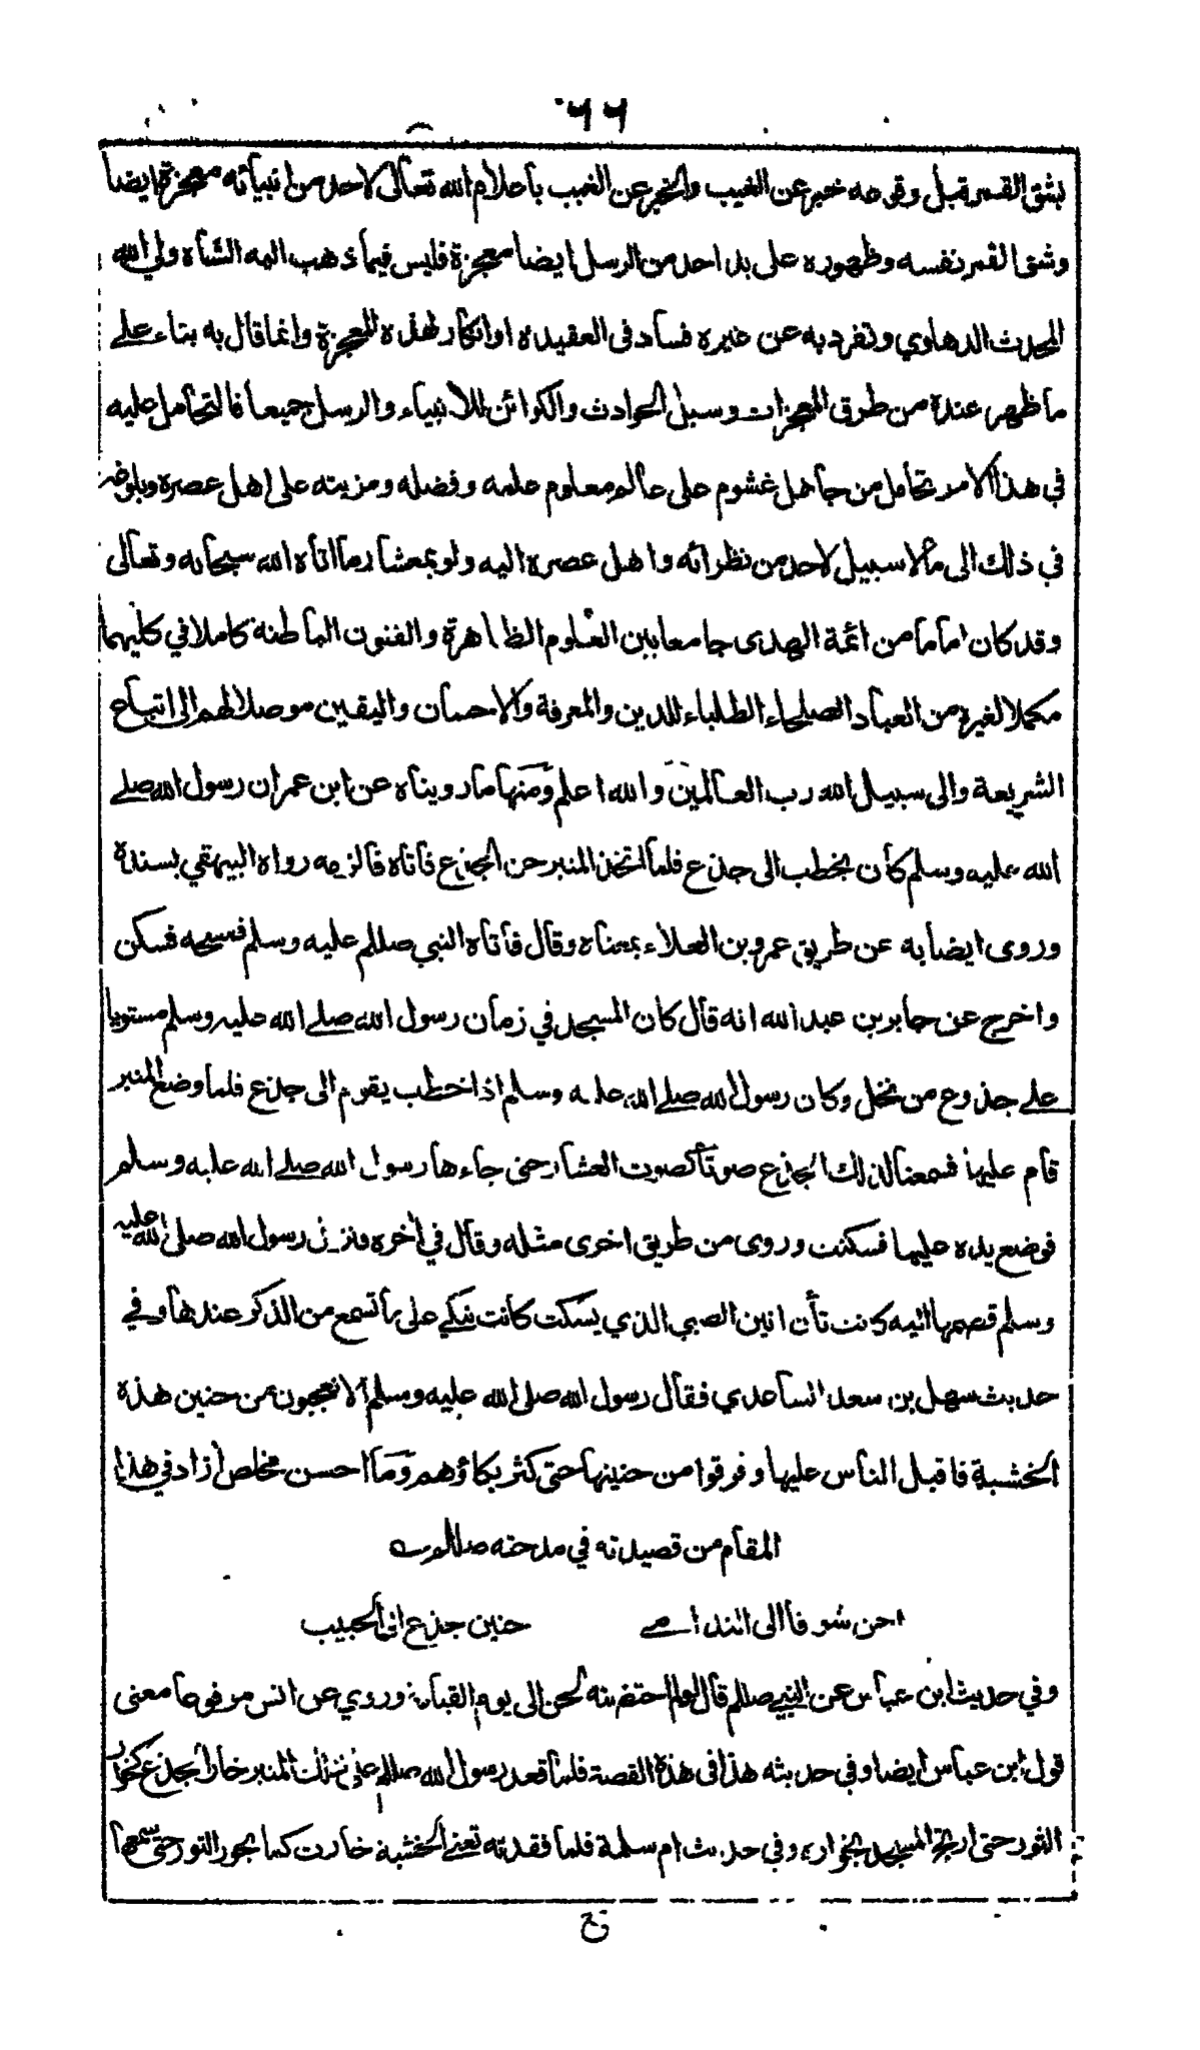 ٦٦
بشق القمر قبل وقوعه خبر عن الغيب والخبر عن الغيب بأعلام الله تعالى لاحد من انبيائه معجزة ايضا
وشق القمر نفسه وظهوره على يد احد من الرسل ايضا معجزة فليس فيما ذهب اليه الشاه ولي الله
المحدث الدهلوي وتفرد به عن غيره فساد فى العقيدة او انكار لهذه المعجزة وانما قال به بناء على
ما ظهر عنده من طرق المعجزات وسبل الحوادث والكوائن للانبياء والرسل جميعا فالتحامل عليه
في هذا الامر تحامل من جاهل غشوم على عالم معلوم علمه وفضله ومزيته على اهل عصره وبلوغه
في ذلك الى ما لا سبيل لاحد من نظرائه واهل عصره اليه ولو بمعشار ما اتاه الله سبحانه وتعالى
وقد كان اماما من ائمة الهدى جامعا بين العلوم الظاهرة والفنون الباطنة كاملا في كليهما
مكملا لغيره من العباد الصلحاء الطلباء للدين والمعرفة والاحسان واليقين موصلا لهم الى اتباع
الشريعة والى سبيل الله رب العالمين والله اعلم ومنها ما رويناه عن ابن عمران رسول الله صلے
الله عليه وسلم كان يخطب الى جذع فلما اتخذ المنبر حن الجذع فاتاه فالزمه رواه البيهقي بسنده
وروى ايضا به عن طريق عمرو بن العلاء بمعناه وقال فاتاه النبي صللم عليه وسلم فمسحه فسكن
واخرج عن جابر بن عبد الله انه قال كان المسجد في زمان رسول الله صلے الله عليه وسلم مستويا
علے جذوع من نخل وكان رسول الله صلے الله عليه وسلم اذا خطب يقوم الى جذع فلما وضع المنبر
قام عليها فسمعنا لذلك الجذع صوتا كصوت العشار حتى جاءها رسول الله صلے الله عليه وسلم
فوضع يده عليها فسكنت وروى من طريق اخرى مثله وقال في أخره فنزل رسول الله صلى الله عليه
وسلم فضمها اليه كانت تأن انين الصبي الذي يسكت كانت تبكي على ما تسمع من الذكر عندها وفي
حديث سهل بن سعد الساعدي فقال رسول الله صلى الله عليه وسلم ألا تعجبون من حنين هذه
الخشبة فاقبل الناس عليها وفرقوا من حنينها حتى كثر بكاؤهم وما احسن مخلص أزاد في هذا
المقام من قصيدته في مدحته
احن شوقا الى حنين جذع الى الحبيب
وفي حديث ابن عباس عن النبي صللم قال لولم احتضنه لحن الى يوم القيامة وروي عن انس مرفوعا معنى
قول ابن عباس ايضا وفي حديثه هذا فى هذه القصة فلما قعد رسول الله صللم على ذلك المنبر خار الجذع كخوار
الثور حتى ارتج المسجد بخواره وفي حديث ام سلمة فلما فقدته تعني الخشبة خارت كما يخور الثور حتى سمعها